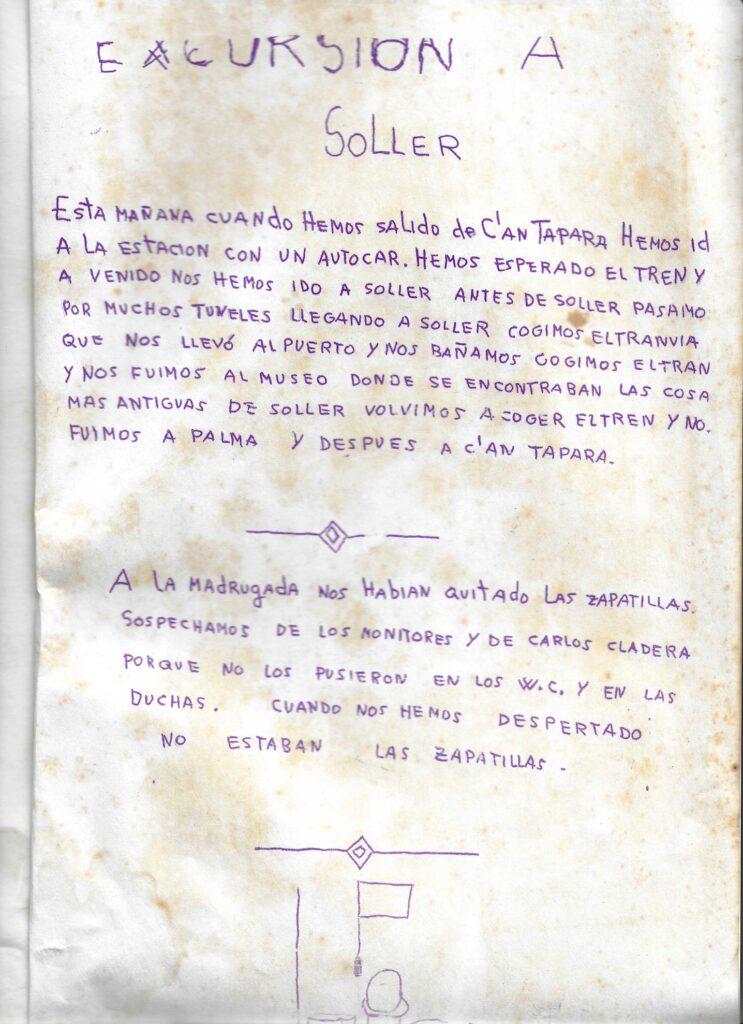 EXCURSION A
SOLLER
Esta MAÑANA CUANDO HEMOS SALIDO de C'AN TAPARA HEMOS id
A LA ESTACION CON UN AUTOCAR. HEMOS ESPERADO EL TREN Y
A VENIDO NOS HEMOS IDO A SOLLER ANTES DE SOLLER PASAMO
POR MUCHOS TUNELES LLEGANDO A SOLLER COGIMOS ELTRANVIA
QUE NOS LLEVÓ AL PUERTO Y NOS BAÑAMOS COGIMOS ELTRAN
Y NOS FUIMOS AL MUSEO DONDE SE ENCONTRABAN LAS COSA
MAS ANTIGUAS DE SOLLER VOLVIMOS A COGER EL TREN Y NO.
FUIMOS A PALMA Y DESPUES A C'AN TAPARA.
A LA MADRUGADA NOS HABIAN QUITADO LAS ZAPATILLAS.
SOSPECHAMOS DE LOS MONITORES Y DE CARLOS CLADERA
PORQUE NO LOS PUSIERON EN LOS W.C. Y EN LAS
DUCHAS. CUANDO NOS HEMOS DESPERTADO
NO ESTABAN LAS ZAPATILLAS.